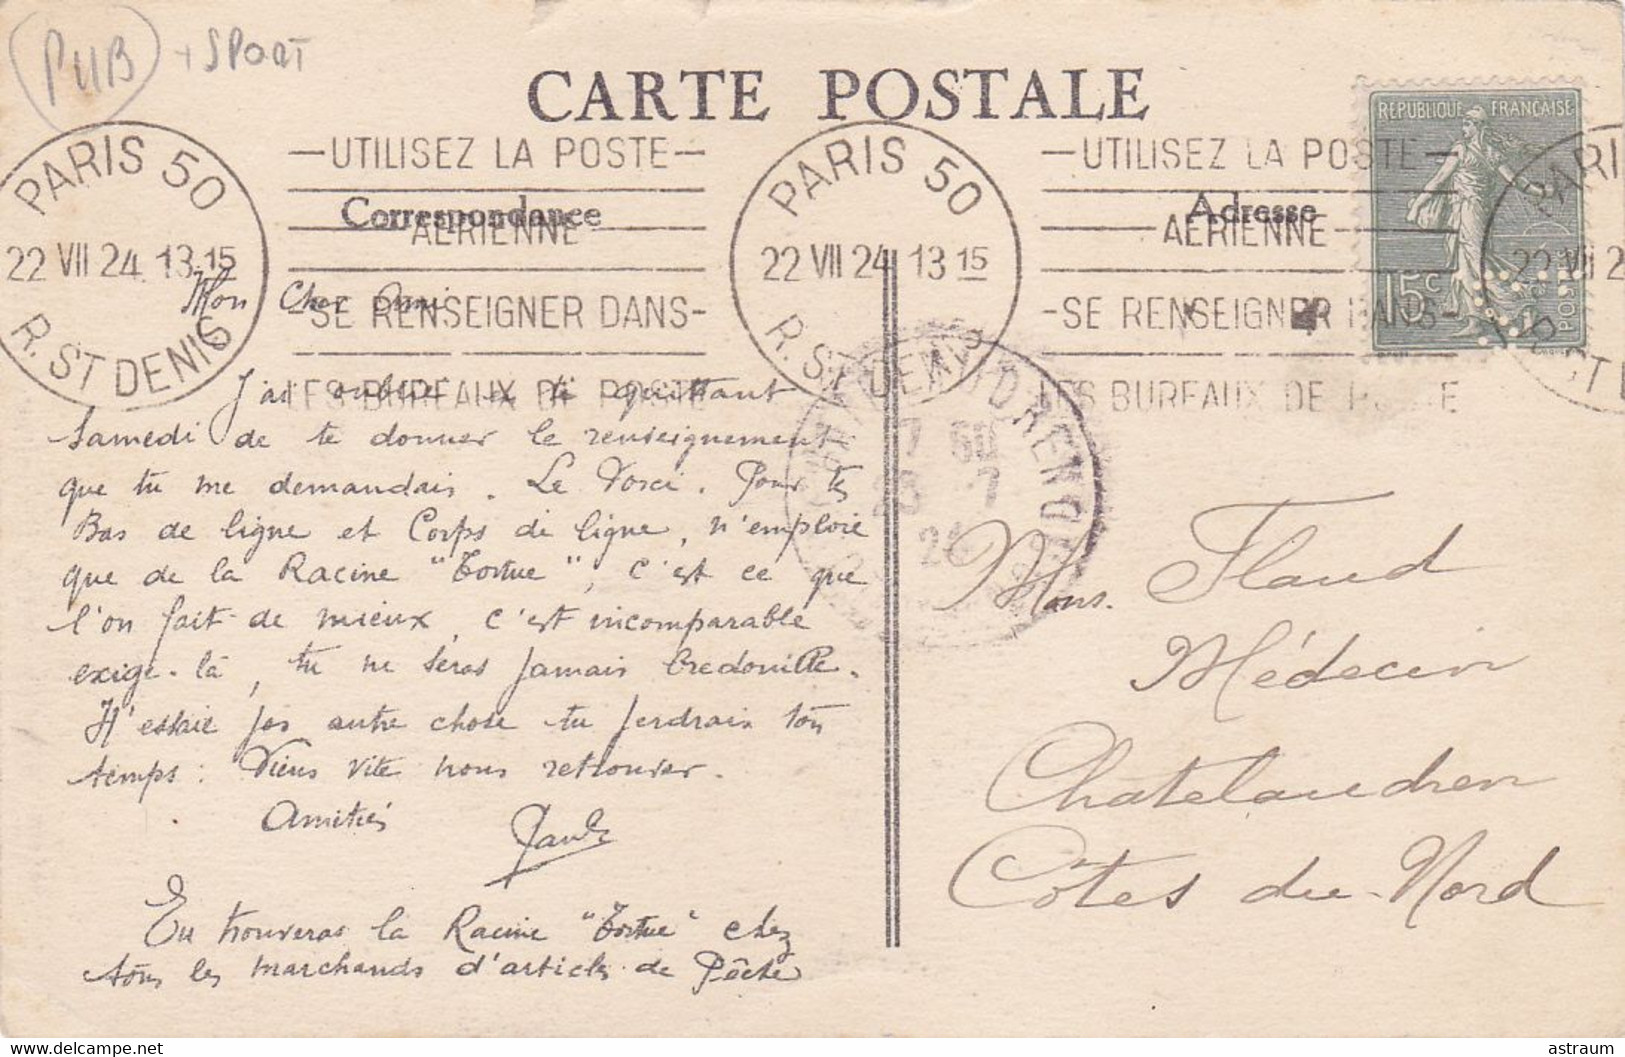 PUB + SPORT
CARTE POSTALE
REPUBLIQUE FRANÇAISE
15c
POSTES
PARIS 50
22 VII 24 13 15
R. ST DENIS
—UTILISEZ LA POSTE—
AÉRIENNE
-SE RENSEIGNER DANS-
LES BUREAUX DE POSTE
PARIS 50
22 VII 24 13 15
R. ST DENIS
—UTILISEZ LA POSTE—
AÉRIENNE
-SE RENSEIGNER DANS-
LES BUREAUX DE POSTE
Correspondance
Adresse
Mon Cher Ami
J'ai oublié en te quittant
Samedi de te donner le renseignement
que tu me demandais. Le Voici. Pour tes
Bas de ligne et Corps de ligne, n'emploie
que de la Racine "Tortue", c'est ce que
l'on fait de mieux, c'est incomparable
exige-la, tu ne seras jamais bredouille.
N'essaie pas autre chose tu perdrais ton
temps: Viens vite nous retrouver.
Amitiés
Tu trouveras la Racine "Tortue" chez
tous les marchands d'articles de Pêche
Mons. Flaud
Médecin
Chatelaudren
Côtes du-Nord
astraum